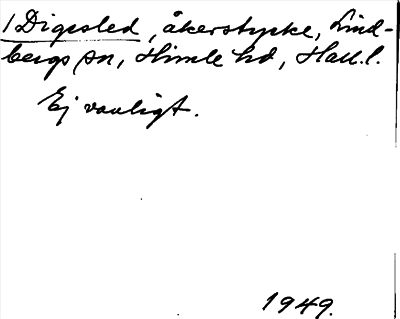 /Digesled, åkerstycke, Lind-
bergs sn, Himle hd, Hall. l.
Ej vanligt.
1949.